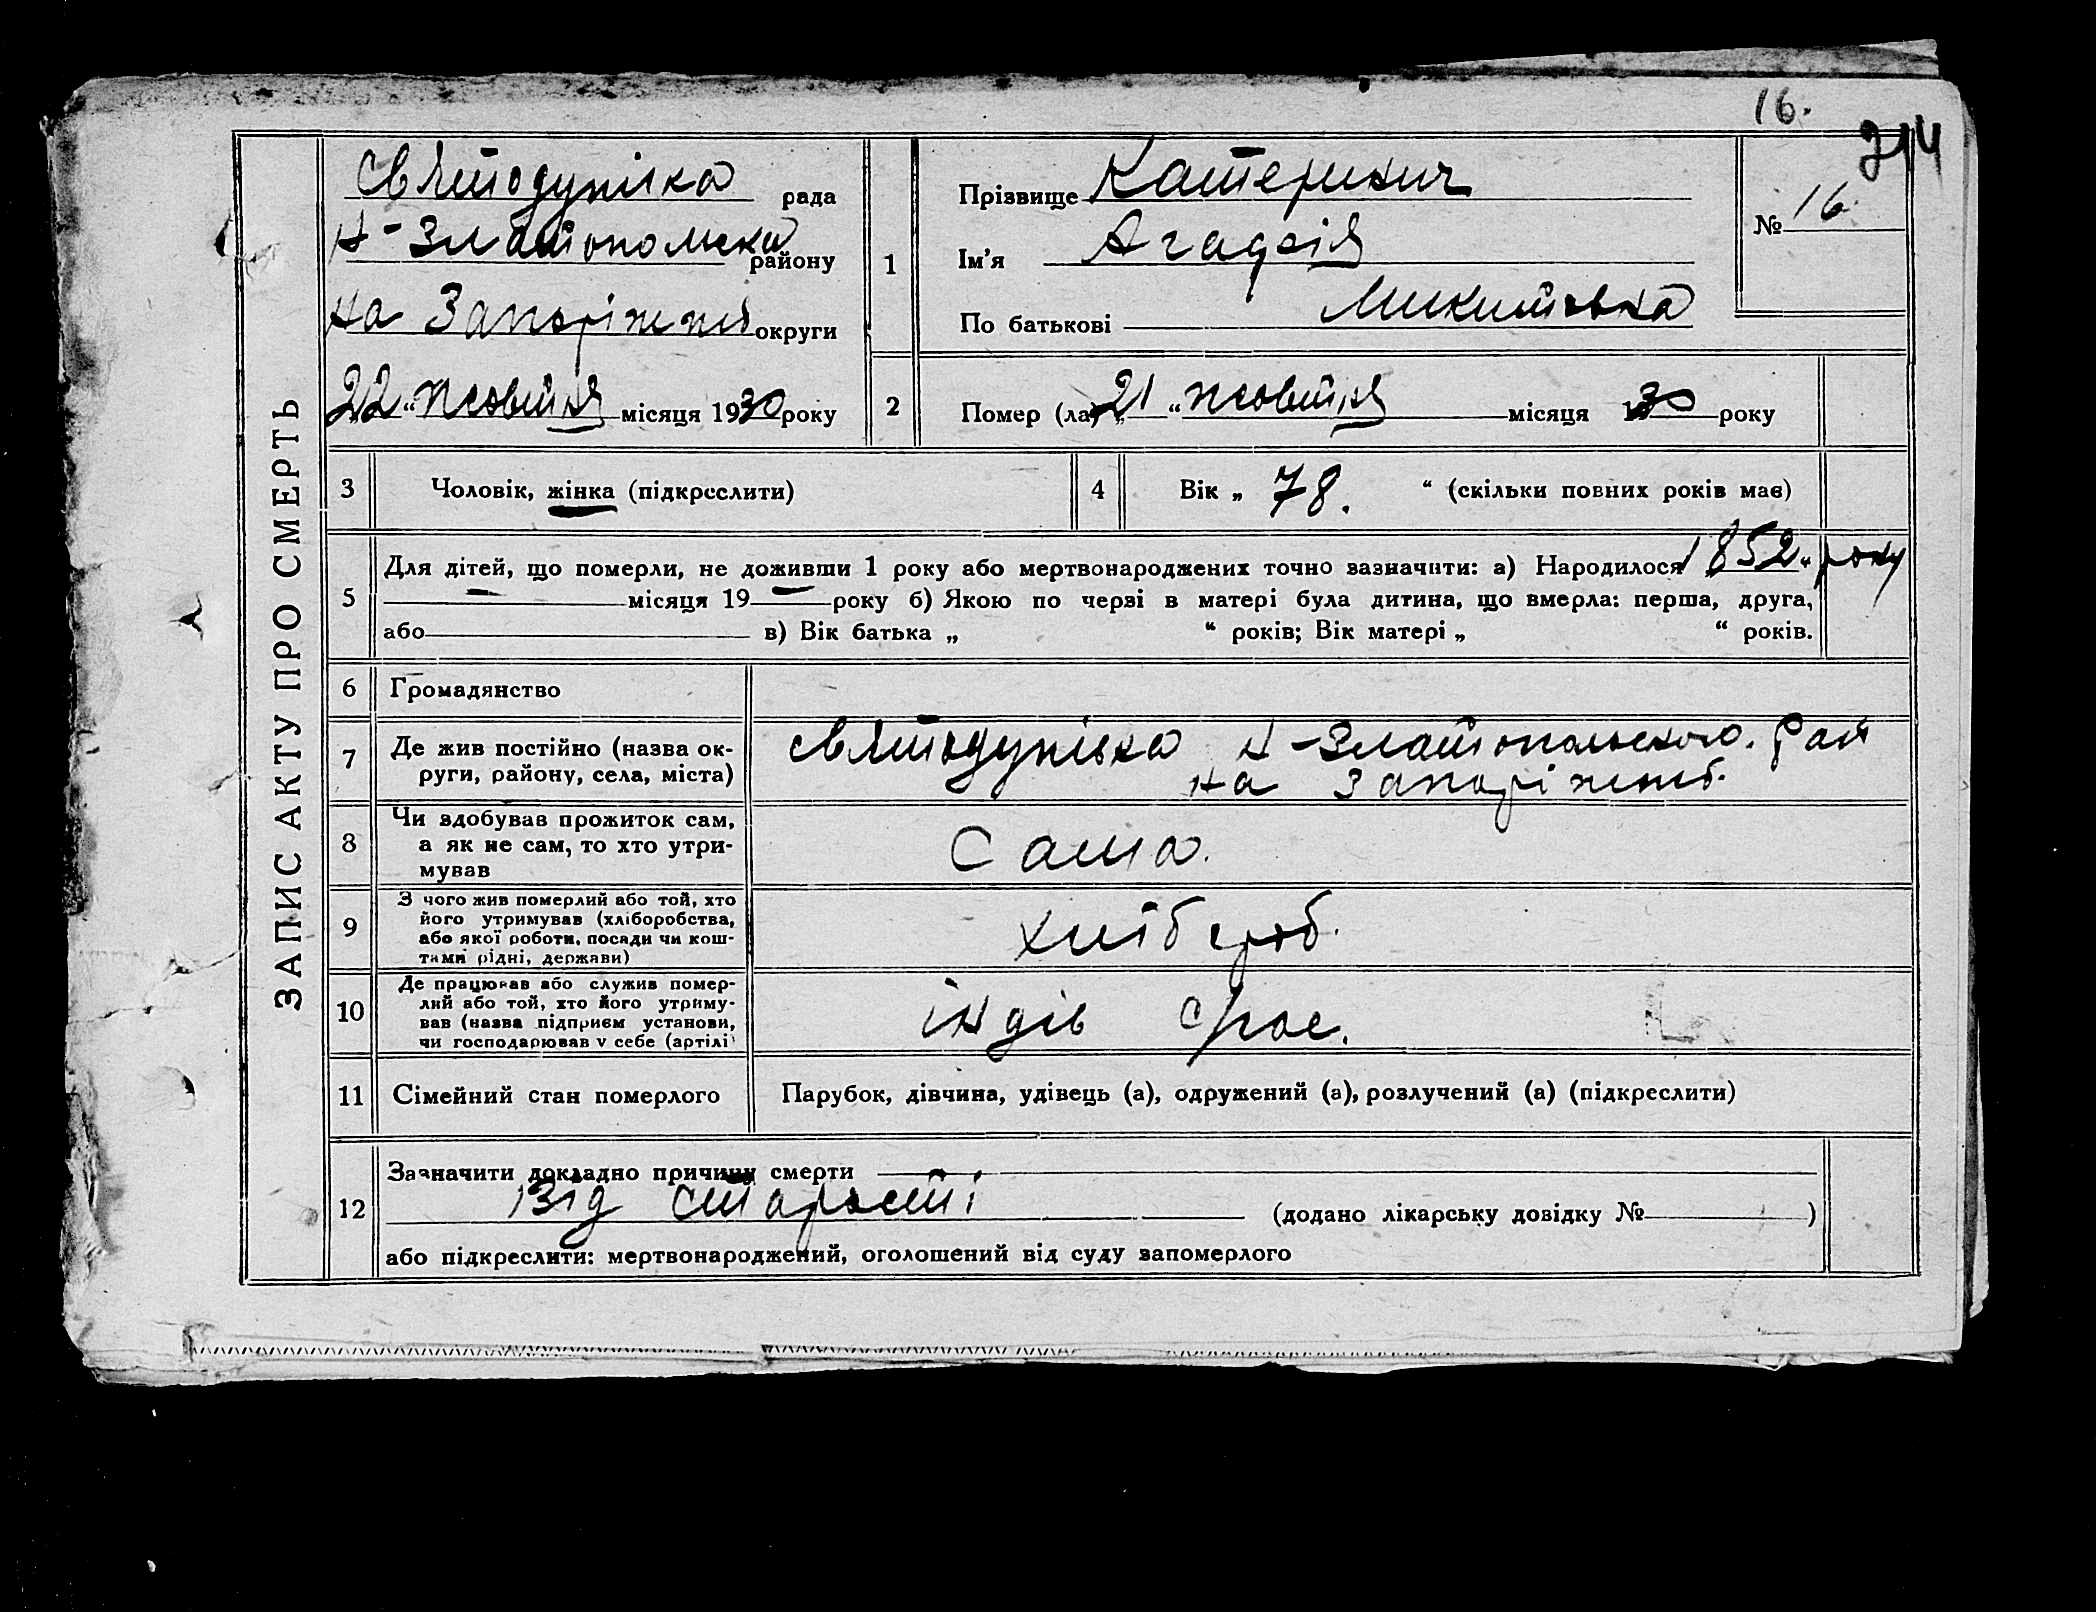 16.
214
ЗАПИС АКТУ ПРО СМЕРТЬ
Святодухівка рада
Н-Златопольска району
на Запоріжжі округи
„22“ жовтня місяця 1930 року
1
Прізвище Катеринич
Ім'я Агафія
По батькові Микитовна
№ 16.
2
Помер (ла) „21“ жовтня місяця 130 року
3 Чоловік, жінка (підкреслити)
4 Вік „ 78. “ (скільки повних років має)
5
Для дітей, що померли, не доживши 1 року або мертвонароджених точно зазначити: а) Народилося 1852 „ року
— місяця 19 — року б) Якою по черзі в матері була дитина, що вмерла: перша, друга,
або в) Вік батька „ “ років; Вік матері „ “ років.
6 Громадянство
7 Де жив постійно (назва ок-
руги, району, села, міста)
Святодухівка Н-Златопольского. Рай
на Запоріжжі.
8 Чи здобував прожиток сам,
а як не сам, то хто утри-
мував
Сама.
9 З чого жив померлий або той, хто
його утримував (хліборобства,
або якої роботи, посади чи кош-
тами рідні, держави)
хлібороб.
10 Де працював або служив помер-
лий або той, хто його утриму-
вав (назва підприєм установи,
чи господарював у себе (артілі)
індів
11 Сімейний стан померлого
Парубок, дівчина, удівець (а), одружений (а), розлучений (а) (підкреслити)
12
Зазначити докладно причину смерти
Від старости
(додано лікарську довідку № )
або підкреслити: мертвонароджений, оголошений від суду запомерлого